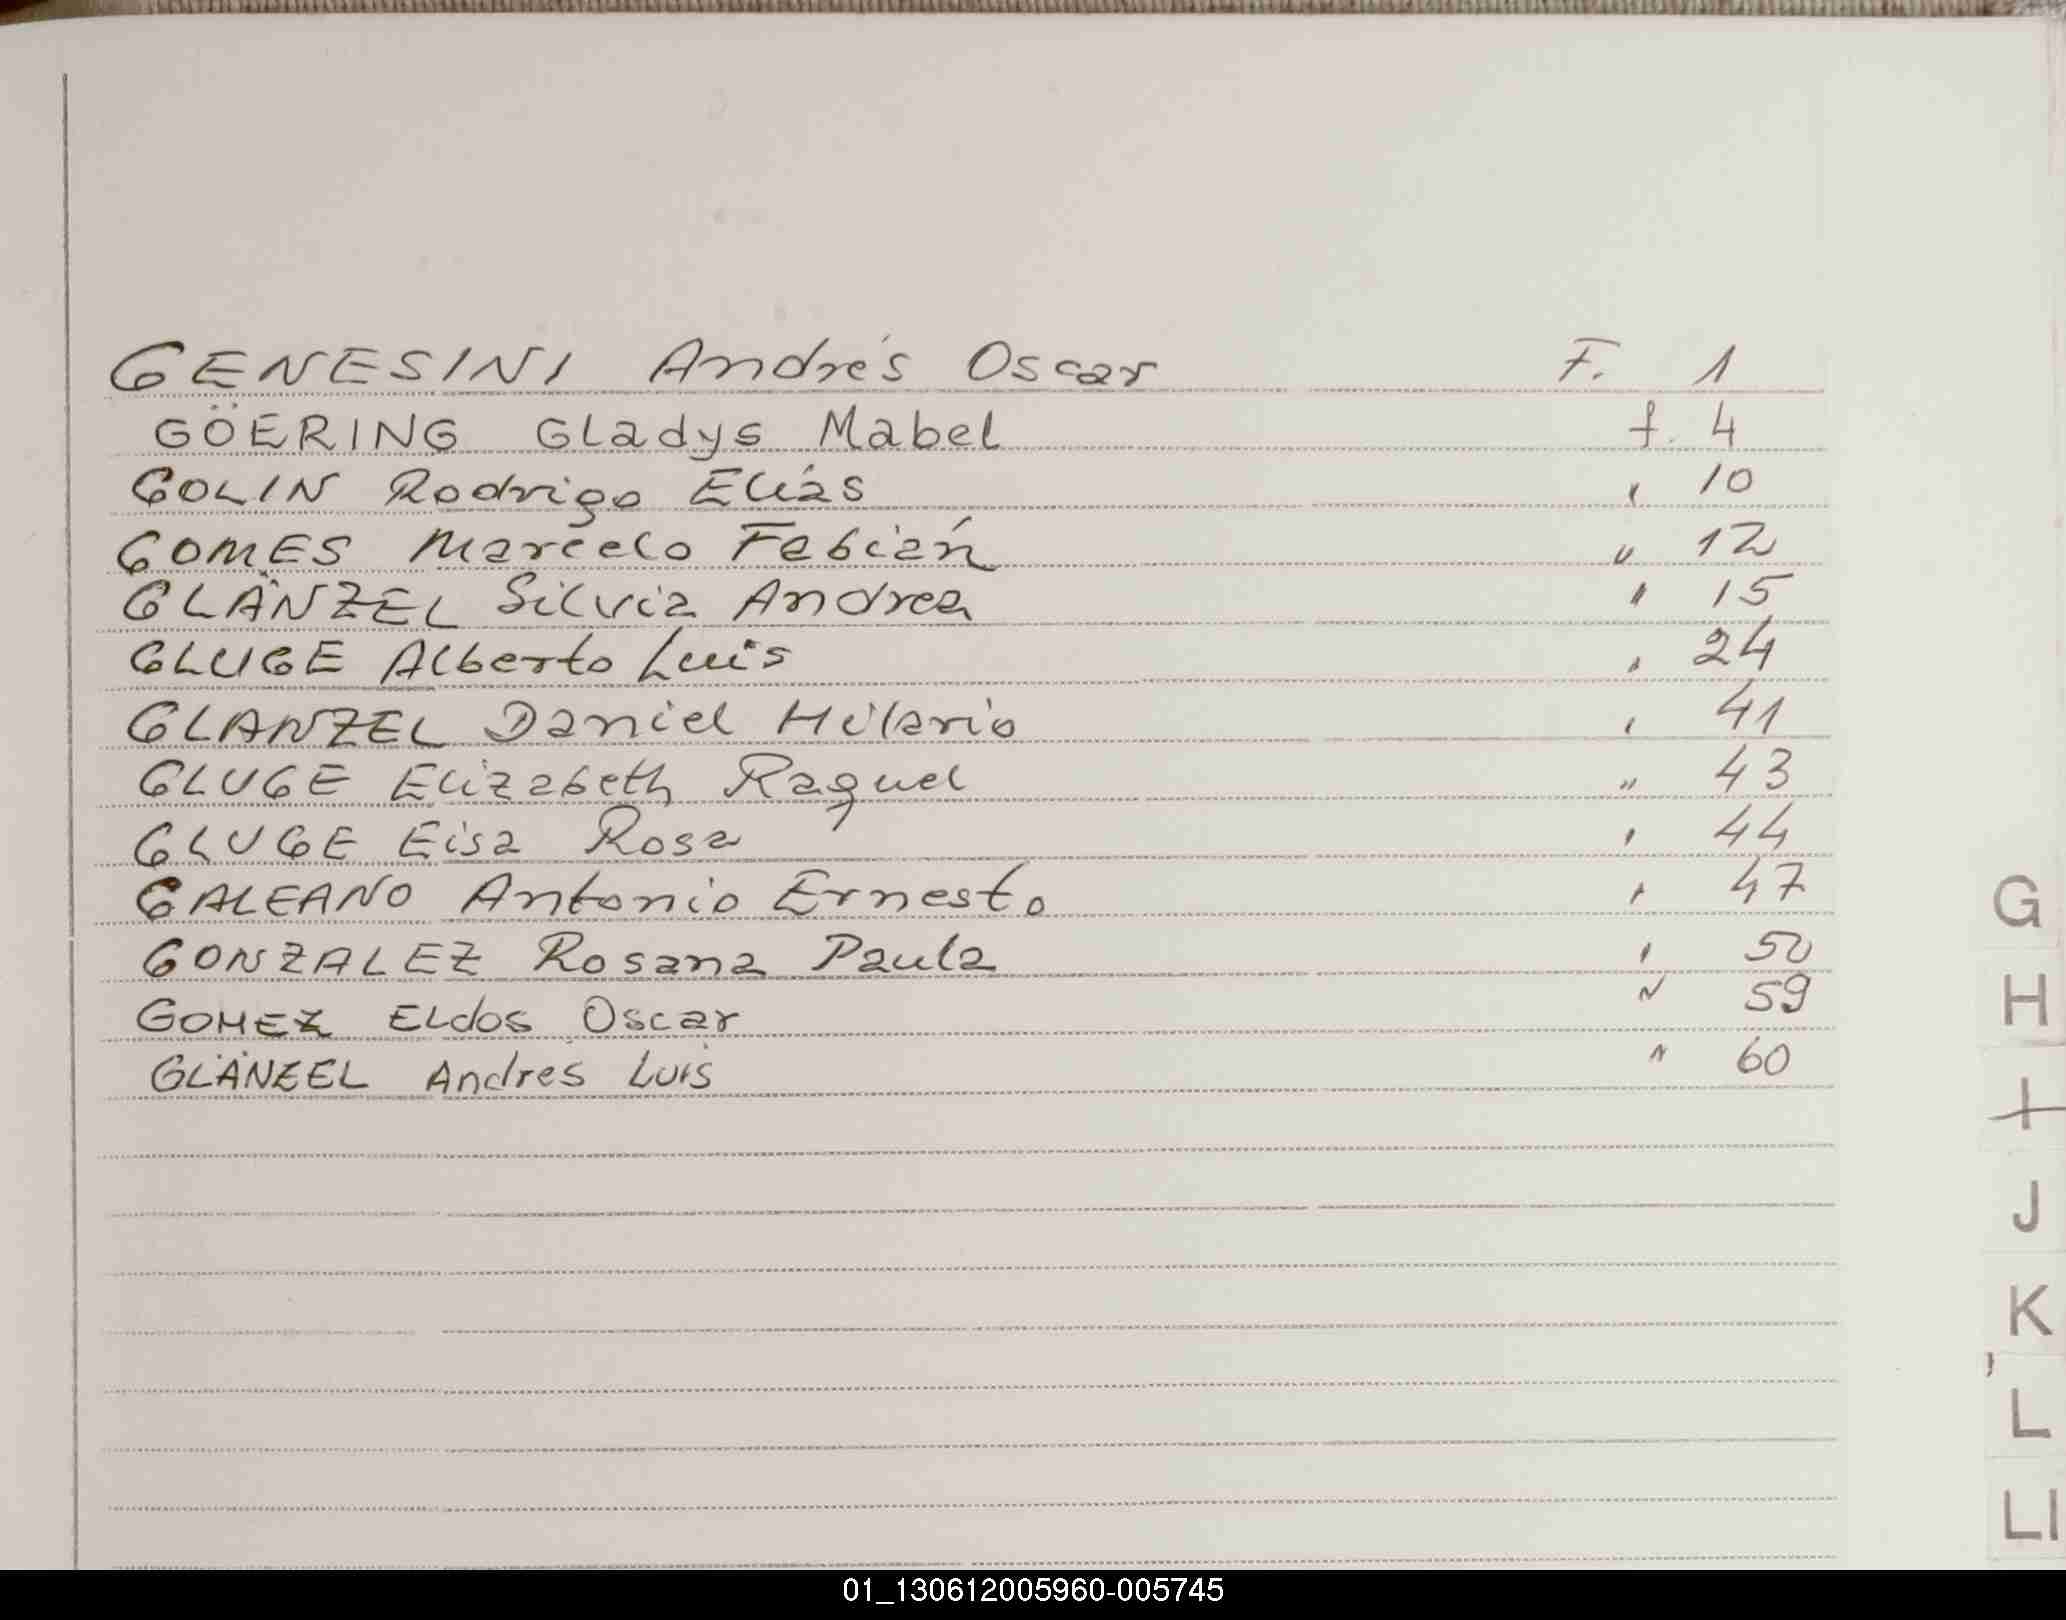 GENESINI Andrés Oscar F. 1
GÖERING Gladys Mabel f. 4
GOLIN Rodrigo Elías " 10
GOMES Marcelo Fabián " 12
GLÄNZEL Silvia Andrea " 15
GLUGE Alberto Luis " 24
GLANZEL Daniel Hilario " 41
GLUGE Elizabeth Raquel " 43
GLUGE Elsa Rosa " 44
GALEANO Antonio Ernesto " 47
GONZALEZ Rosana Paula " 50
GOMEZ ELdos Oscar " 59
GLÄNZEL Andrés Luis " 60
G
H
I
J
K
L
Ll
01_130612005960-005745